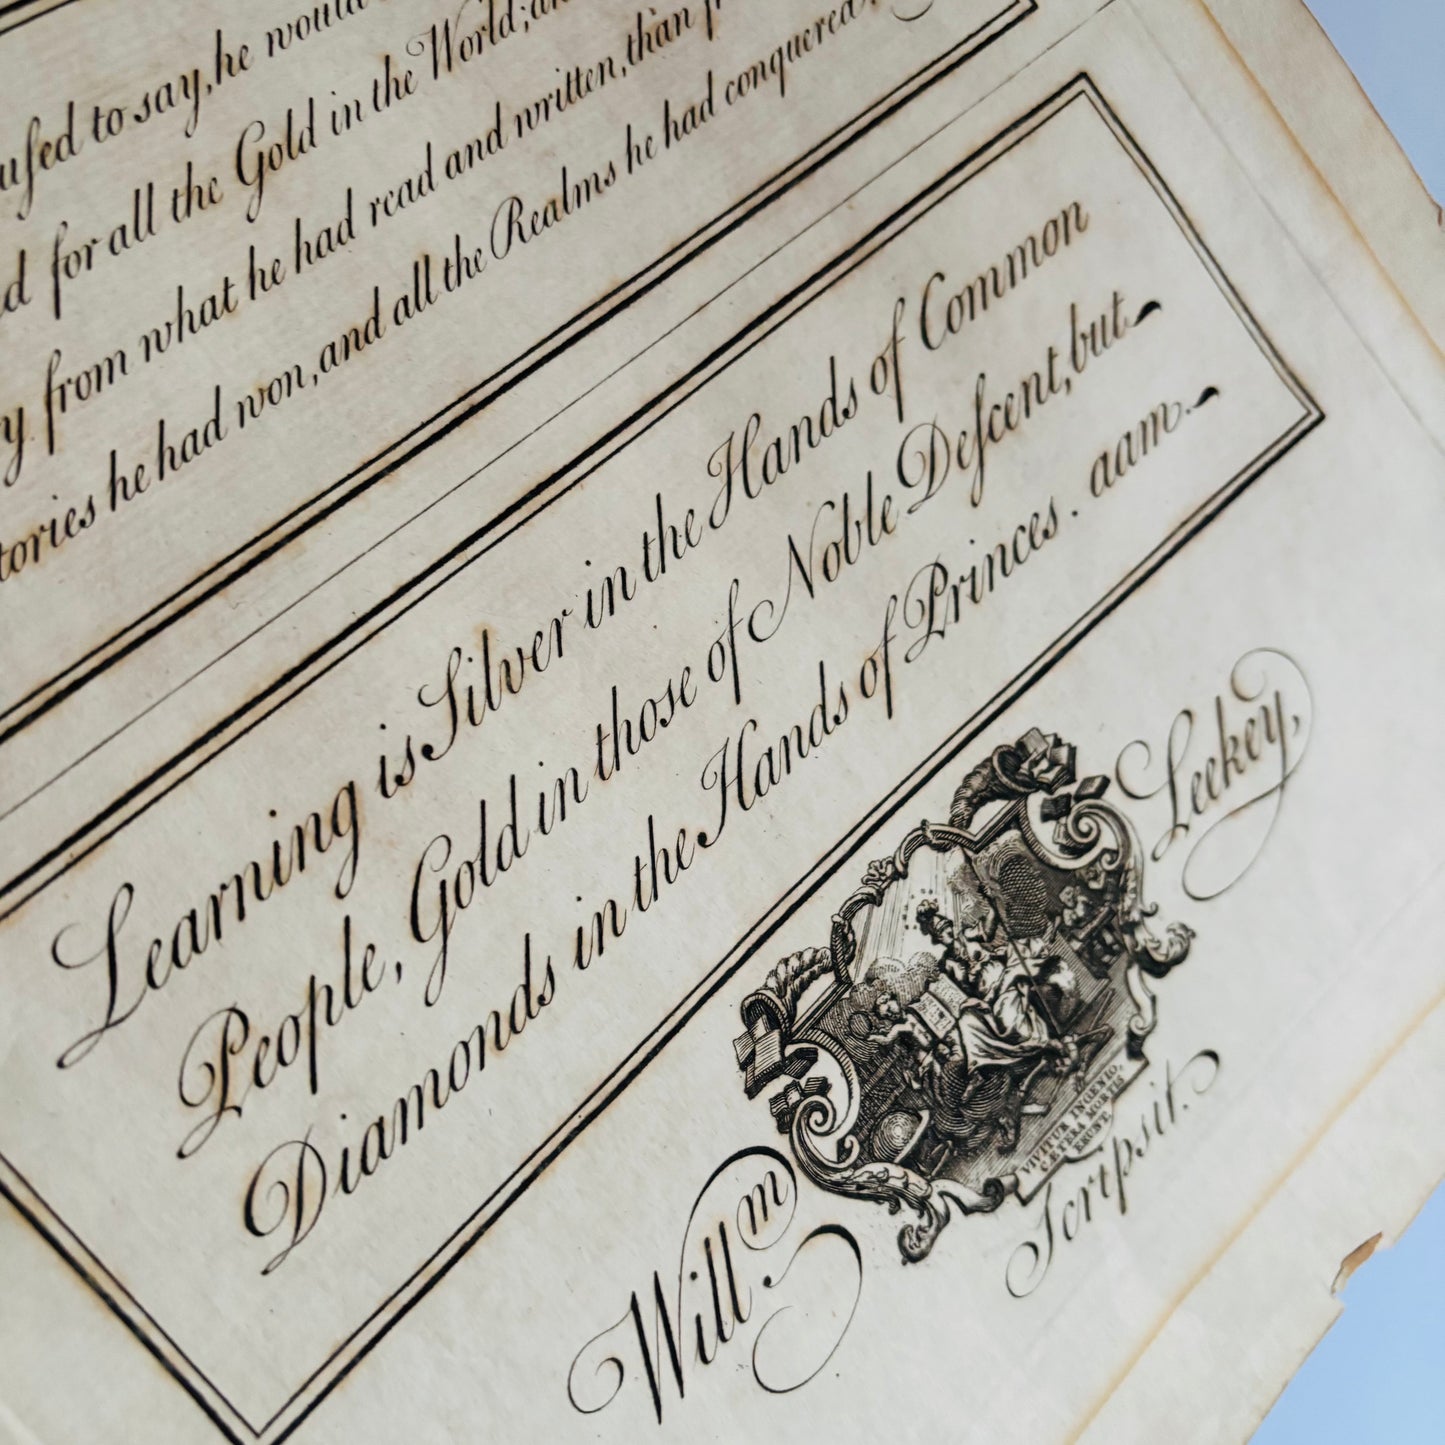 uſed to say, he would
d for all the Gold in the World; an
y from what he had read and written, than
tories he had won, and all the Realms he had conquered
Learning is Silver in the Hands of Common
People, Gold in those of Noble Deſcent, but
Diamonds in the Hands of Princes. aam.
Will.m Leekey,
Scripsit.
VIVITUR INGENIO,
CÆTERA MORTIS
ERUNT.